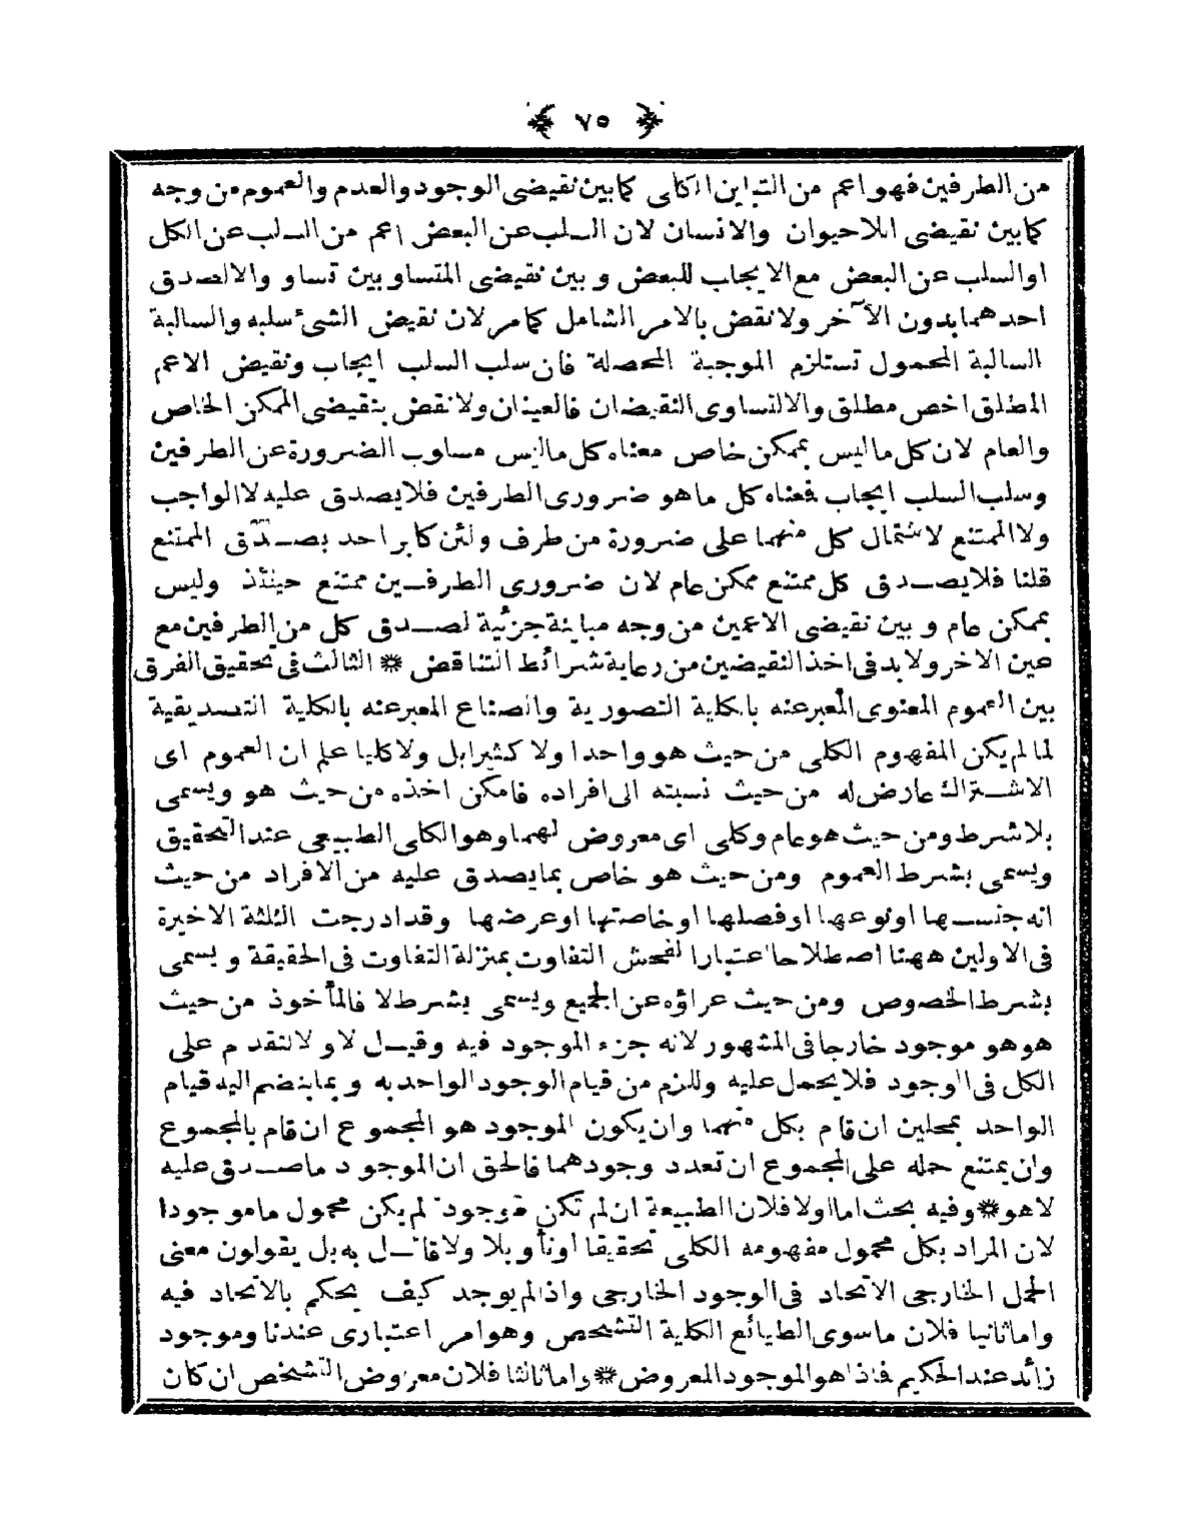 ﴿ ٧٥ ﴾
من الطرفين فهو اعم من التباين الكلى كما بين نقيضى الوجود والعدم والعموم من وجه
كما بين نقيضى اللاحيوان والانسان لان السلب عن البعض اعم من السلب عن الكل
او السلب عن البعض مع الايجاب للبعض و بين نقيضى المتساويين تساو والا لصدق
احدهما بدون الآخر ولا نقض بالامر الشامل كما مر لان نقيض الشئ سلبه والسالبة
السالبة المحمول تستلزم الموجبة المحصلة فان سلب السلب ايجاب ونقيض الاعم
المطلق اخص مطلق والا لتساوى النقيضان فالعينان ولا نقض بنقيضى الممكن الخاص
والعام لان كل ما ليس بممكن خاص معناه كل ما ليس مسلوب الضرورة عن الطرفين
وسلب السلب ايجاب فمعناه كل ما هو ضرورى الطرفين فلا يصدق عليه لا الواجب
ولا الممتنع لاشتمال كل منهما على ضرورة من طرف ولئن كابر احد بصدق الممتنع
قلنا فلا يصدق كل ممتنع ممكن عام لان ضرورى الطرفين ممتنع حينئذ وليس
بممكن عام و بين نقيضى الاعمين من وجه مباينة جزئية لصدق كل من الطرفين مع
عين الاخر ولا بد فى اخذ النقيضين من رعاية شرائط التناقض * الثالث فى تحقيق الفرق
بين العموم المعنوى المعبر عنه بالكلية التصورية والصناع المعبر عنه بالكلية التصديقية
لما لم يكن المفهوم الكلى من حيث هو واحدا ولا كثيرا بل ولا كليا علم ان العموم اى
الاشتراك عارض له من حيث نسبته الى افراده فامكن اخذه من حيث هو ويسمى
بلا شرط ومن حيث هو عام وكلى اى معروض لهما وهو الكلى الطبيعى عند التحقيق
ويسمى بشرط العموم ومن حيث هو خاص بما يصدق عليه من الافراد من حيث
انه جنسها او نوعها او فصلها او خاصتها او عرضها وقد ادرجت الثلثة الاخيرة
فى الاولين ههنا اصطلاحا اعتبارا لفحش التفاوت بمنزلة التفاوت فى الحقيقة و يسمى
بشرط الخصوص ومن حيث عراؤه عن الجميع ويسمى بشرط لا فالمأخوذ من حيث
هو هو موجود خارجا فى المشهور لانه جزء الموجود فيه وقيل لا و لا لتقدم على
الكل فى الوجود فلا يحمل عليه وللزم من قيام الوجود الواحد به و بما ينضم اليه قيام
الواحد بمحلين ان قام بكل منهما وان يكون الموجود هو المجموع ان قام بالمجموع
وان يمتنع حمله على المجموع ان تعدد وجودهما فالحق ان الموجود ما صدق عليه
لا هو * وفيه بحث اما اولا فلان الطبيعة ان لم تكن موجودة لم يكن محمول ما موجودا
لان المراد بكل محمول مفهومه الكلى تحقيقا او تأويلا ولا قائل به بل يقولون معنى
الحمل الخارجى الاتحاد فى الوجود الخارجى واذا لم يوجد كيف يحكم بالاتحاد فيه
واما ثانيا فلان ما سوى الطبائع الكلية التشخص وهو امر اعتبارى عندنا وموجود
زائد عند الحكيم فاذا هو الموجود المعروض * واما ثالثا فلان معروض التشخص ان كان